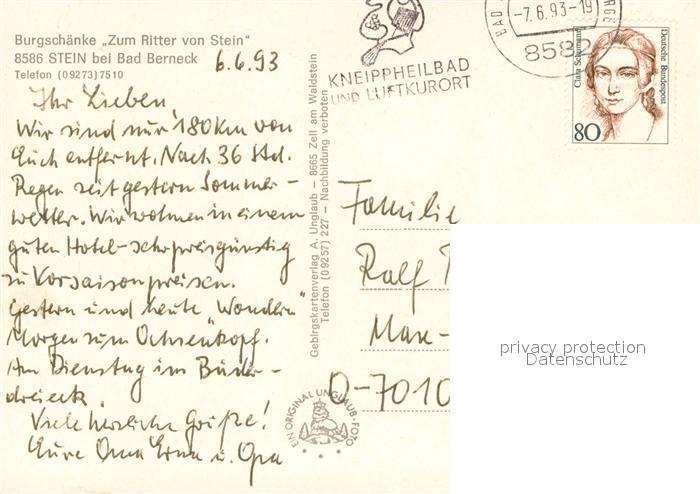 Burgschänke „Zum Ritter von Stein"
8586 STEIN bei Bad Berneck
Telefon (09273) 7510
6.6.93
Ihr Lieben,
Wir sind nur 180 km von
Euch entfernt. Nach 36 Std.
Regen seit gestern Sommer-
wetter. Wir wohnen in einem
guten Hotel - sehr preisgünstig
zu Vorsaisonpreisen.
Gestern und heute "Wandern"
Morgen zum Ochsenkopf.
Am Dienstag im Bäder-
dreieck.
Viele herzliche Grüße!
Eure Oma Erna u. Opa
Gebirgskartenverlag A. Unglaub – 8665 Zell am Waldstein
Telefon (09257) 227 – Nachbildung verboten
EIN ORIGINAL UNGLAUB-FOTO
KNEIPPHEILBAD
UND LUFTKURORT
BAD
-7.6.93-19
858
Clara Schumann
Deutsche Bundespost
80
Familie
Ralf
Max-
D-7010
privacy protection
Datenschutz